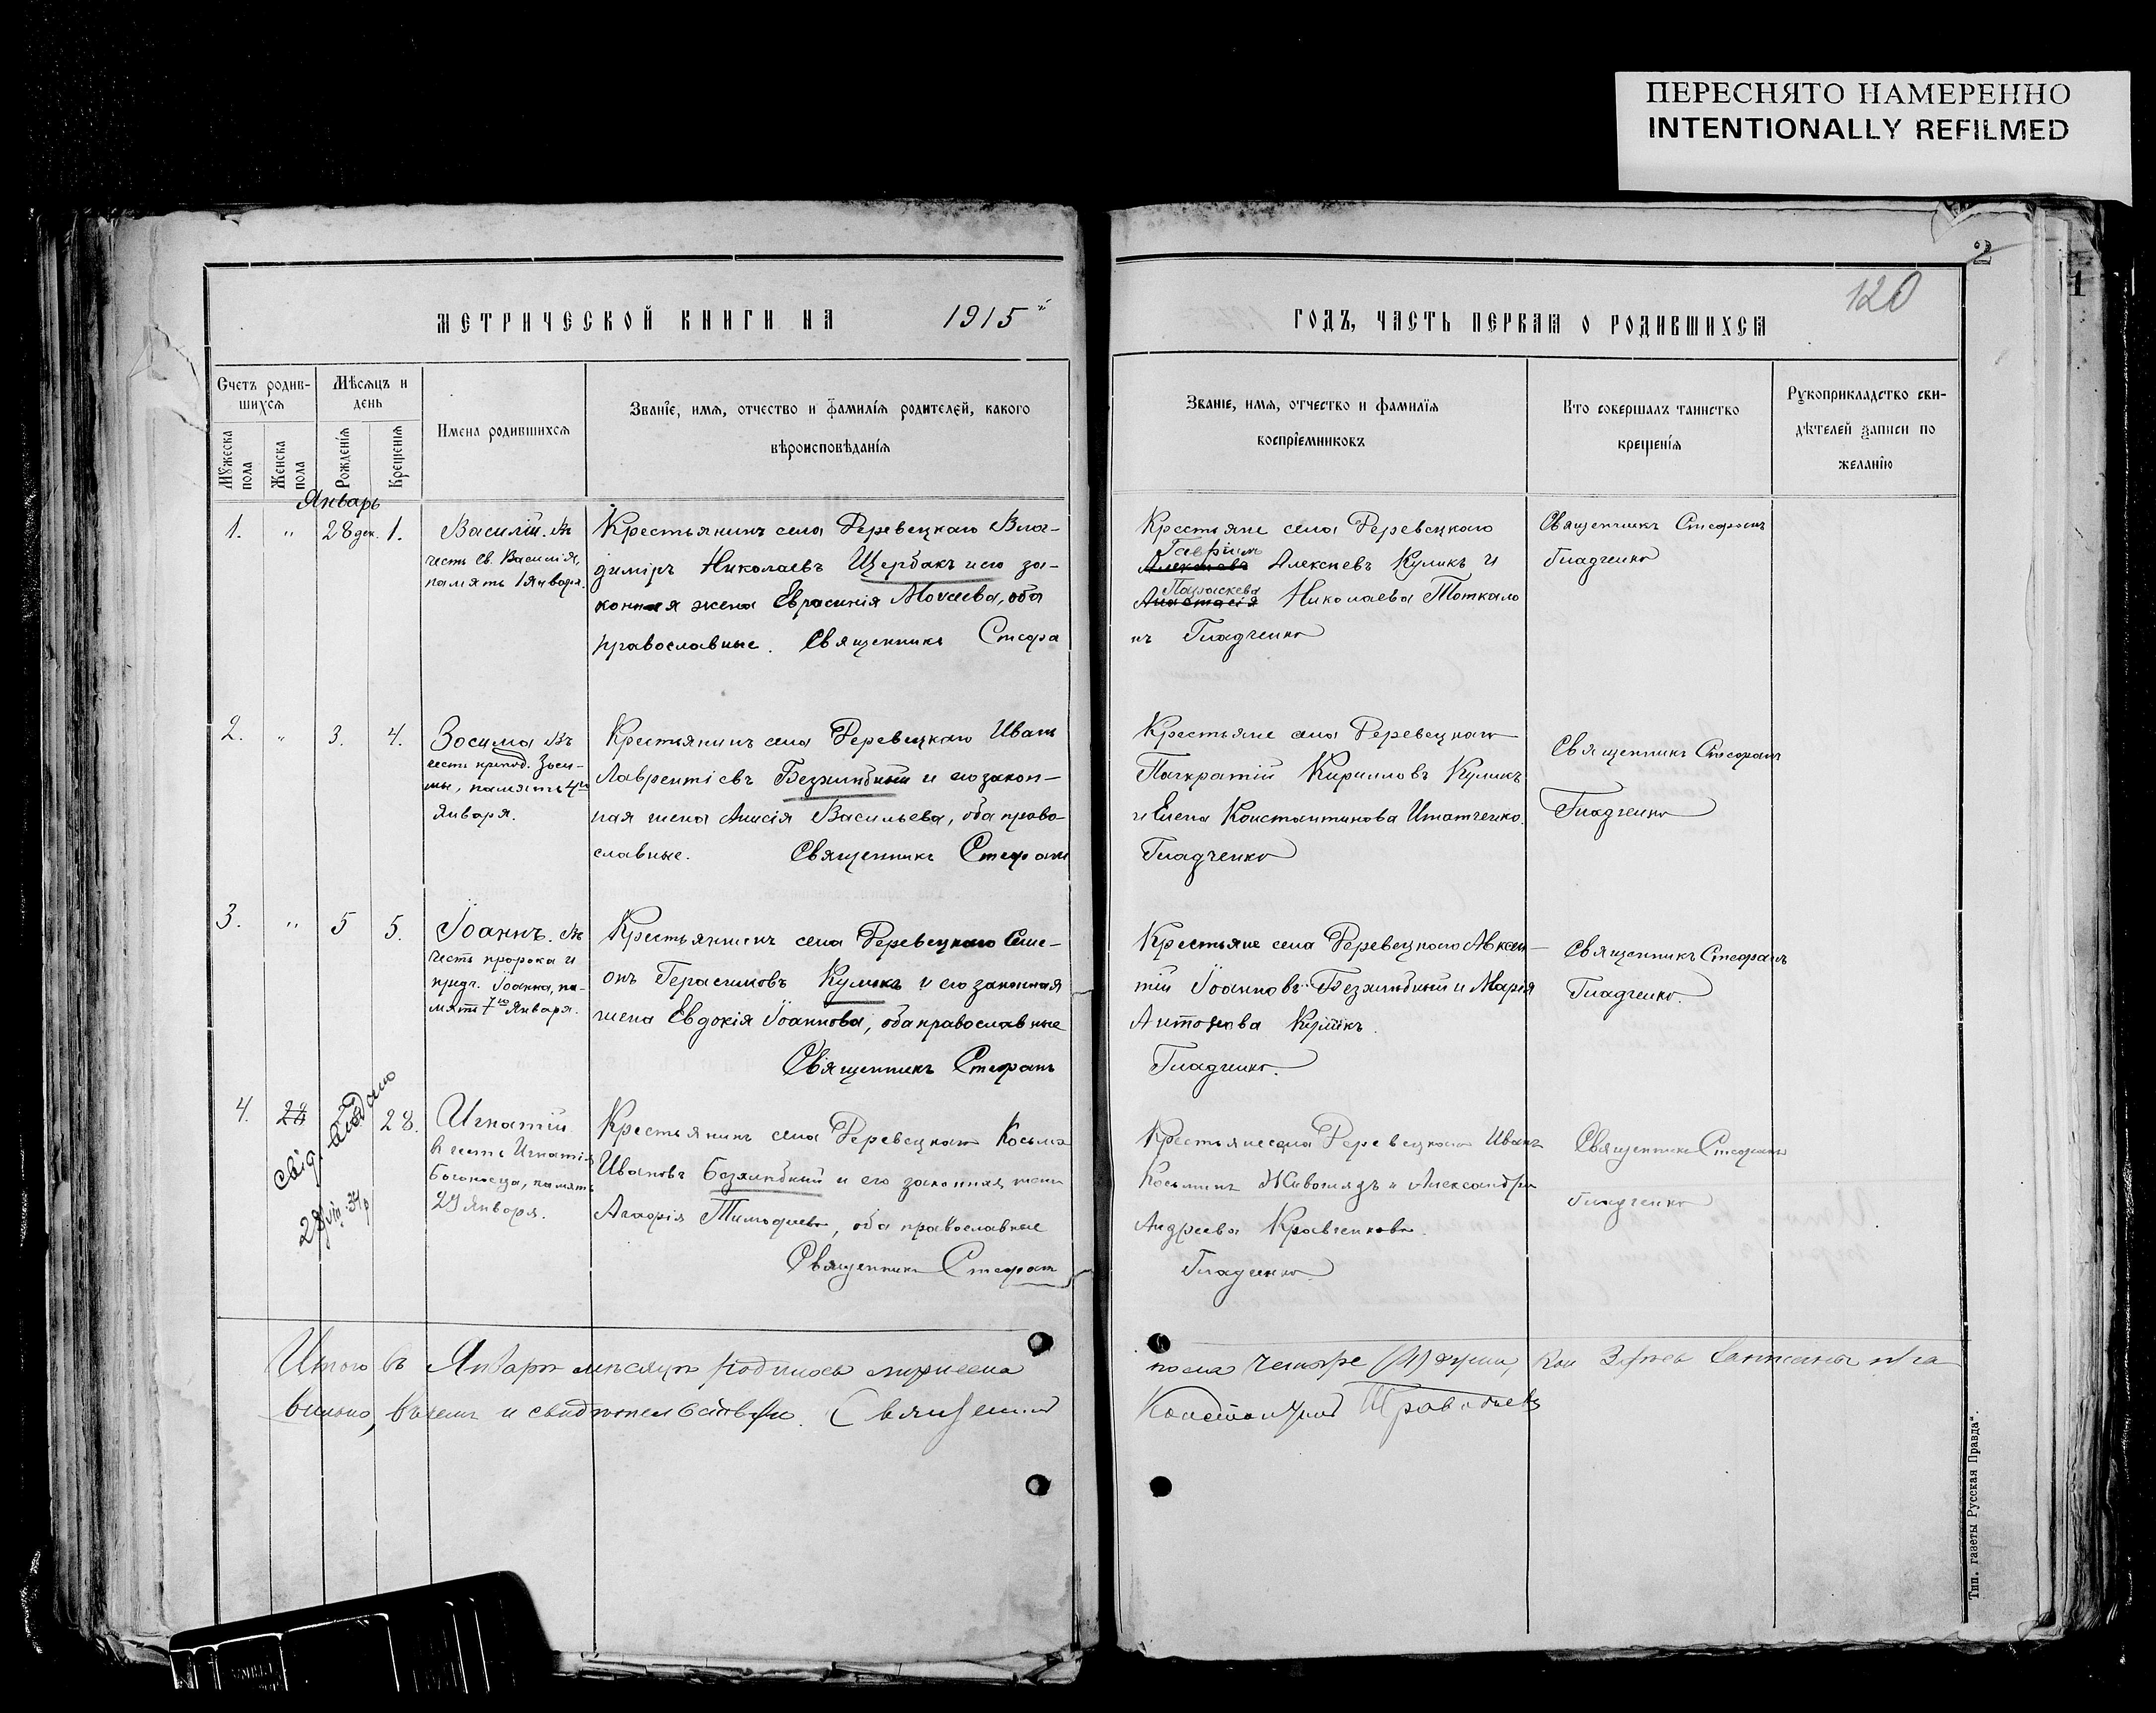 ПЕРЕСНЯТО НАМЕРЕННО
INTENTIONALLY REFILMED
2
1
120
МЕТРИЧЕСКОЙ КНИГИ НА 1915
Счетъ родив-
шихся
Мѣсяцъ и
день
Мужеска
пола
Женска
пола
Рожденія
Крещенія
Имена родившихся
Званіе, имя, отчество и фамилія родителей, какого
вѣроисповѣданія
Январь
1. " 28 дек. 1.
Василій. Въ
честь св. Василія,
память 1 января.
Крестьянинъ села Деревецкаго Вла-
диміръ Николаевъ Щербакъ и его за-
конная жена Евфросинія Моисеева, оба
православные. Священникъ Стефа
2. " 3. 4.
Зосима Въ
честь препод. Зоси-
мы, память 4го
января.
Крестьянинъ села Деревецкаго Иванъ
Лаврентіевъ Беззлюбный и его закон-
ная жена Анисія Васильева, оба право-
славные. Священникъ Стефанъ
3. " 5 5.
Іоаннъ. Въ
честь пророка и
предт. Іоанна, па-
мять 7го Января.
Крестьянинъ села Деревецкаго Симе-
онъ Герасимовъ Куликъ и его законная
жена Евдокія Іоаннова, оба православные
Священникъ Стефанъ
4. 28 28.
Свід. видано
28/VIII-37р
Игнатій
въ честь Игнатія
Богоносца, память
29 Января.
Крестьянинъ села Деревецкаго Косьма
Ивановъ Беззлюбный и его законная жена
Агафія Тимофеева, оба православные
Священникъ Стефанъ
Итого въ Январѣ мѣсяцѣ родилось мужеска
вильно, въ чемъ и свидѣтельствую. Священникъ
ГОДЪ, ЧАСТЬ ПЕРВАЯ О РОДИВШИХСЯ
Званіе, имя, отчество и фамилія
воспріемниковъ
Кто совершалъ таинство
крещенія
Рукоприкладство сви-
дѣтелей записи по
желанію
Крестьяне села Деревецкаго
Гавріилъ
Алексѣевъ Куликъ и
Параскева
Анастасія Николаева Ткаткало
нъ Гладченко
Священникъ Стефанъ
Гладченко
Крестьяне села Деревецкаго
Панкратій Кирилловъ Куликъ
и Елена Константинова Игнатченко.
Гладченко
Священникъ Стефанъ
Гладченко
Крестьяне села Деревецкаго Авксен-
тій Іоанновъ Беззлюбный и Марія
Антонова Куликъ.
Гладченко.
Священникъ Стефанъ
Гладченко.
Крестьяне села Деревецкаго Иванъ
Косьминъ Живоглядъ и Александра
Андреева Кравченкова.
Гладченко
Священникъ Стефанъ
Гладченко
пола четыре (4) души, кои здѣсь записаны пра
Константинъ
Тип. газеты „Русская Правда“.